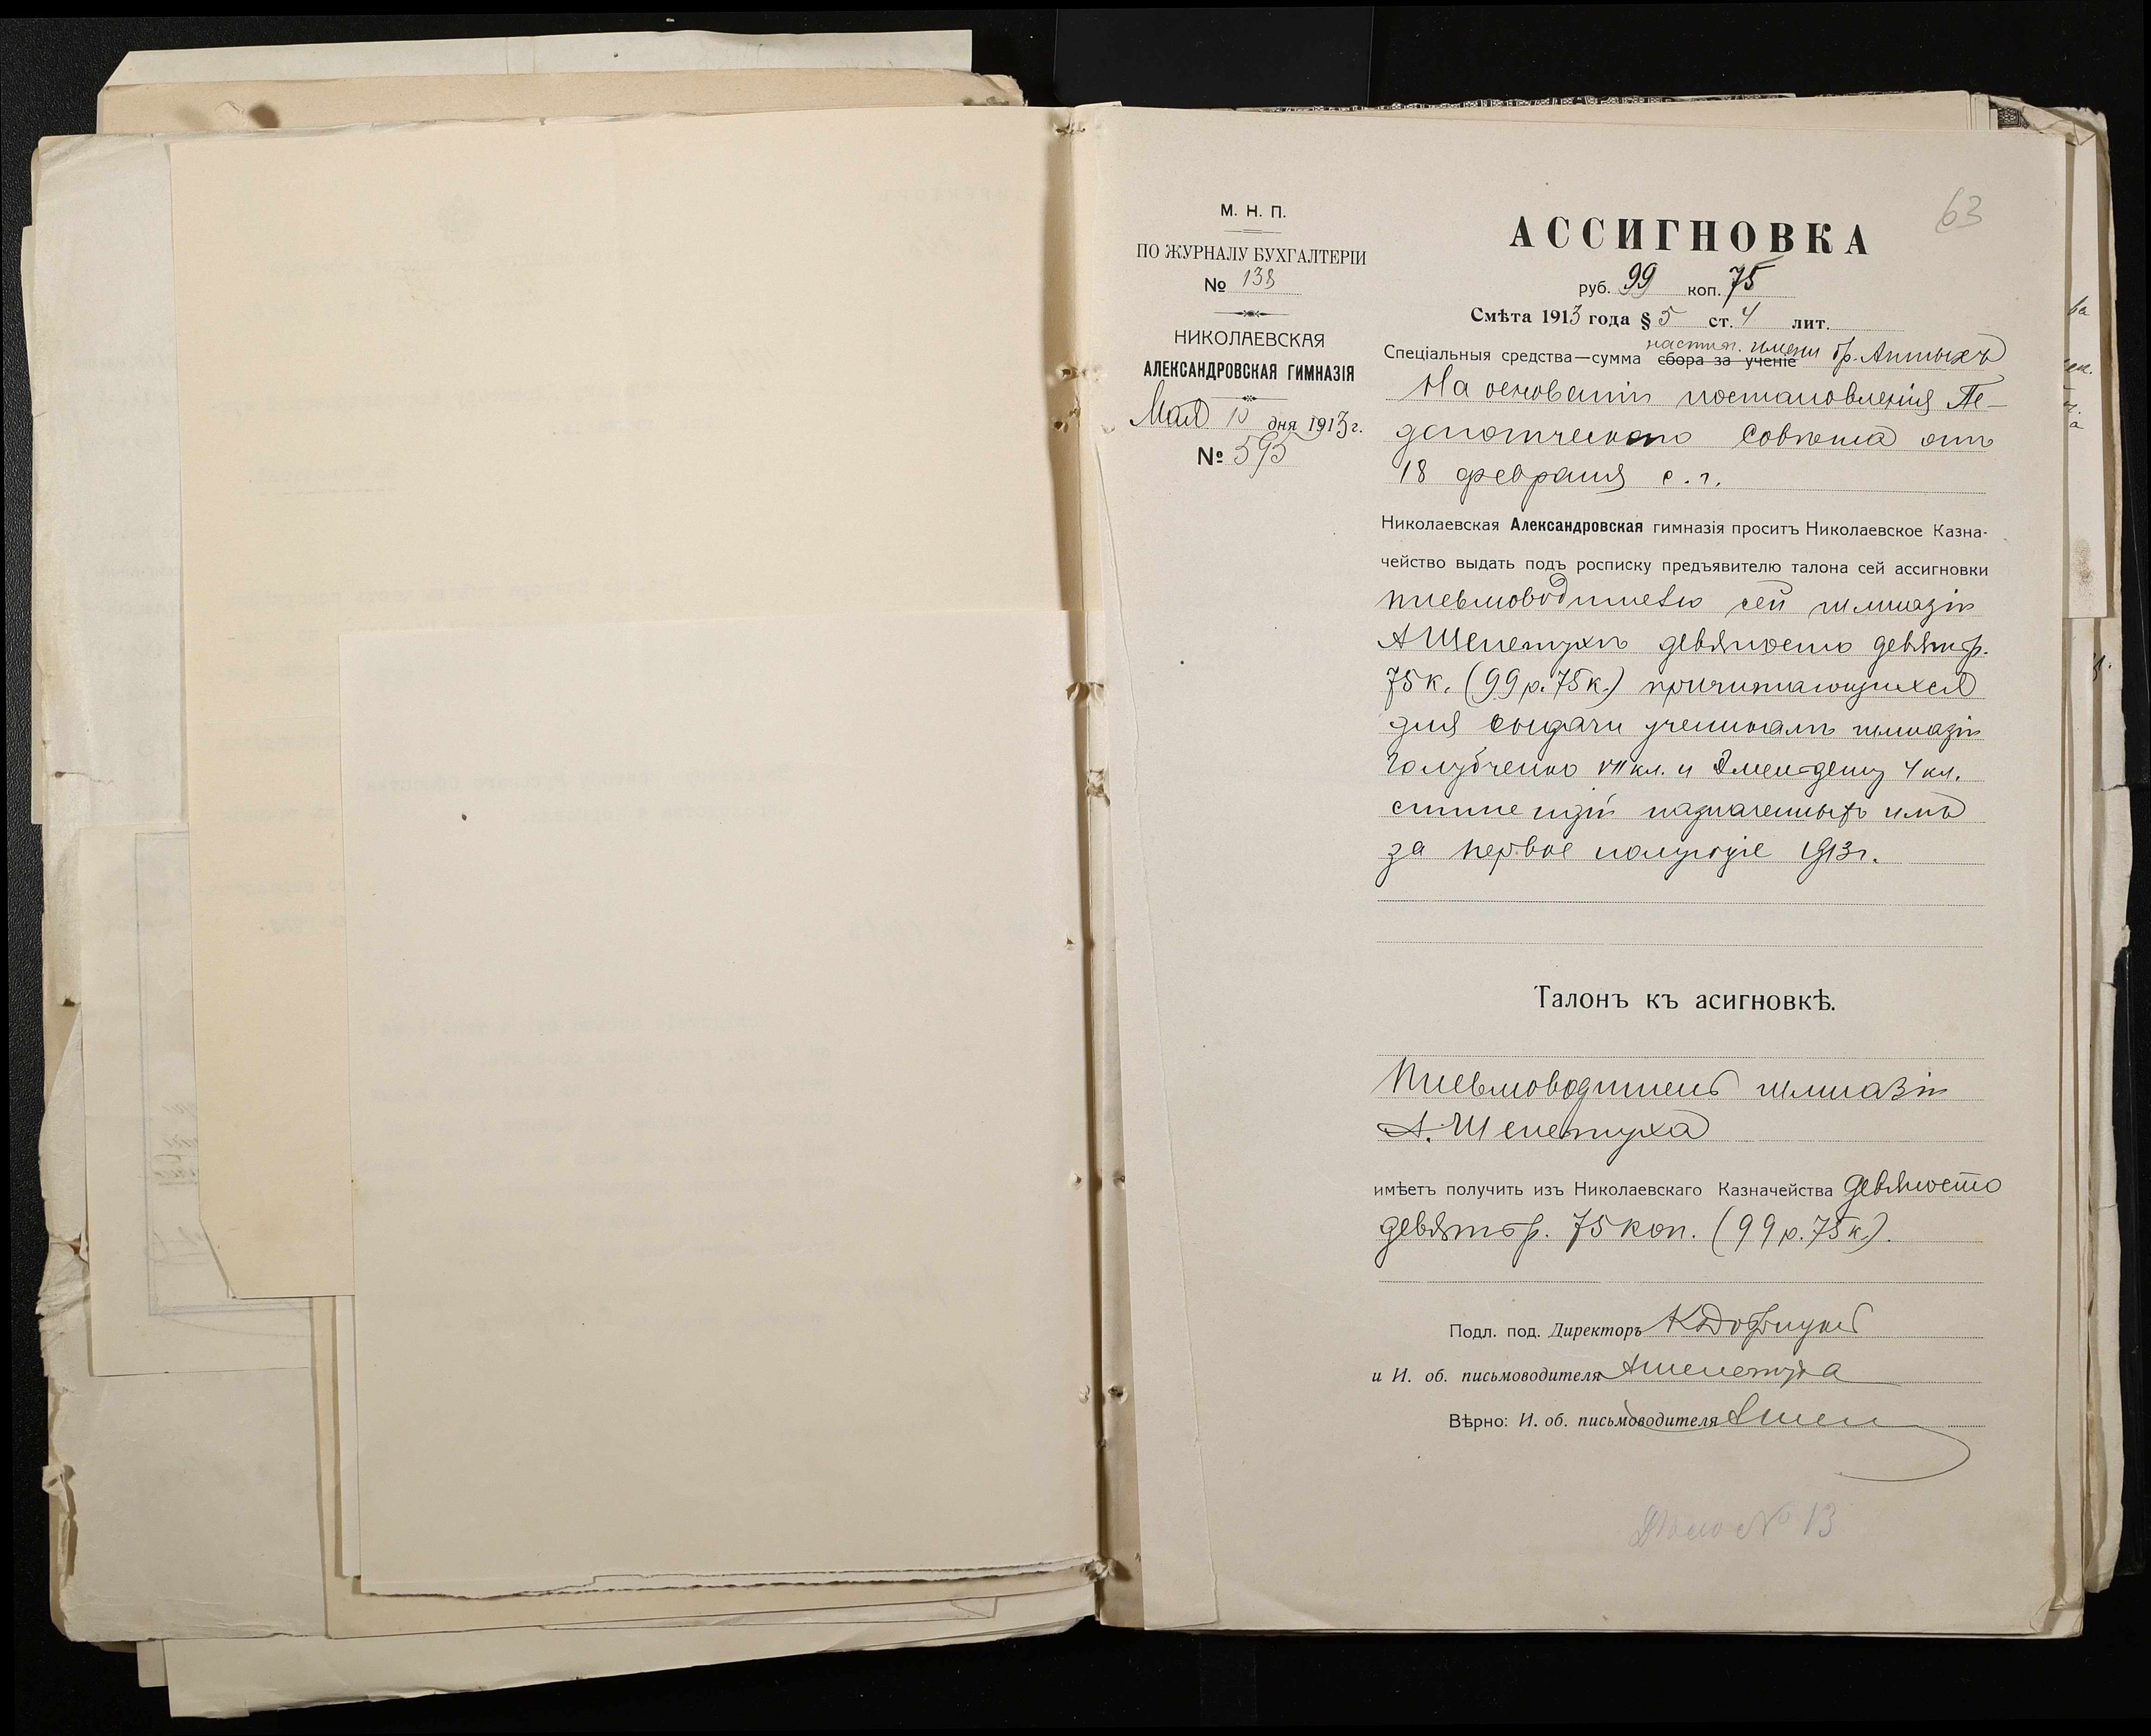 63
М. Н. П.
ПО ЖУРНАЛУ БУХГАЛТЕРІИ
№ 138
НИКОЛАЕВСКАЯ
АЛЕКСАНДРОВСКАЯ ГИМНАЗІЯ
Мая 10 дня 1913 г.
№ 595
АССИГНОВКА
руб. 99 коп. 75
Смѣта 1913 года § 5 ст. 4 лит.
имени бр.
Спеціальныя средства—сумма сбора за ученіе
На основаніи постановленія Пе-
дагогическаго Совѣта отъ
18 февраля с. г.
Николаевская Александровская гимназія проситъ Николаевское Казна-
чейство выдать подъ росписку предъявителю талона сей ассигновки
письмоводителю сей гимназіи
А Шепетухѣ девяносто девять р.
75 к. (99 р. 75 к.) причитающихся
для выдачи ученикамъ гимназіи
Голубченко VII кл. и 4 кл.
стипендій назначенныхъ имъ
за первое полугодіе 1913 г.
Талонъ къ асигновкѣ.
Письмоводитель гимназіи
А. Шепетуха
имѣетъ получить изъ Николаевскаго Казначейства девяносто
девять р. 75 коп. (99 р. 75 к).
Подл. под. Директоръ
и И. об. письмоводителя АШепетуха
Вѣрно: И. об. письмоводителя АШеп
Дѣло № 13